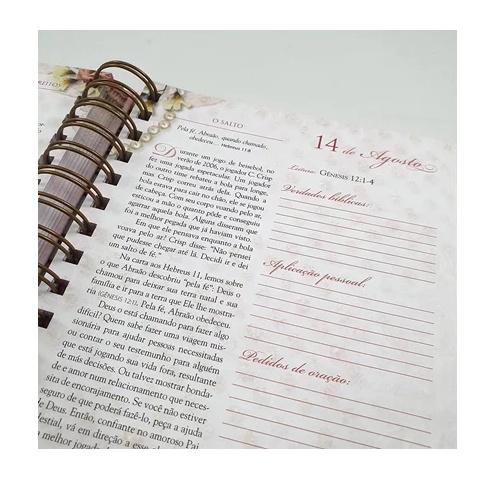 REITOS
O SALTO
Pela fé, Abraão, quando chamado,
obedeceu... HEBREUS 11:8
Durante um jogo de beisebol, no
verão de 2006, o jogador C. Crisp
fez uma jogada espetacular. Um jogador
do outro time rebateu a bola e Crisp
mas Crisp correu atrás dela. Quando a
bola estava para cair no chão, ele se jogou
de cabeça. Com seu corpo voando pelo ar,
esticou a mão o quanto pôde e conseguiu
agarrar aquela bola. Alguns disseram que
foi a melhor pegada que já haviam visto.
Em que ele pensava enquanto a bola
voava pelo ar? Crisp disse: “Não pensei
que pudesse chegar até lá. Decidi ir e dei
um salto de fé.”
Na carta aos Hebreus 11, lemos sobre
o que Abraão descobriu “pela fé”. Deus o
chamou para deixar sua terra natal e sua
família e ir para a terra que Ele lhe mostra-
ria (GÊNESIS 12:1). Pela fé, Abraão obedeceu.
Deus o está chamando para fazer algo
difícil? Quem sabe fazer uma viagem mis-
sionária para ajudar pessoas necessitadas
ou contar o seu testemunho para alguém
que está jogando sua vida fora, resultante
de más decisões. Ou talvez mostrar bonda-
de e amor num relacionamento que neces-
sita de encorajamento. Se você não estiver
seguro de que poderá fazê-lo, peça a ajuda
de Deus. Então, confiante no amoroso Pai
elestial, vá em direção a esse
o melhor jogador
14 de Agosto
Leitura: GÊNESIS 12:1-4
Verdades bíblicas:
Aplicação pessoal:
Pedidos de oração: